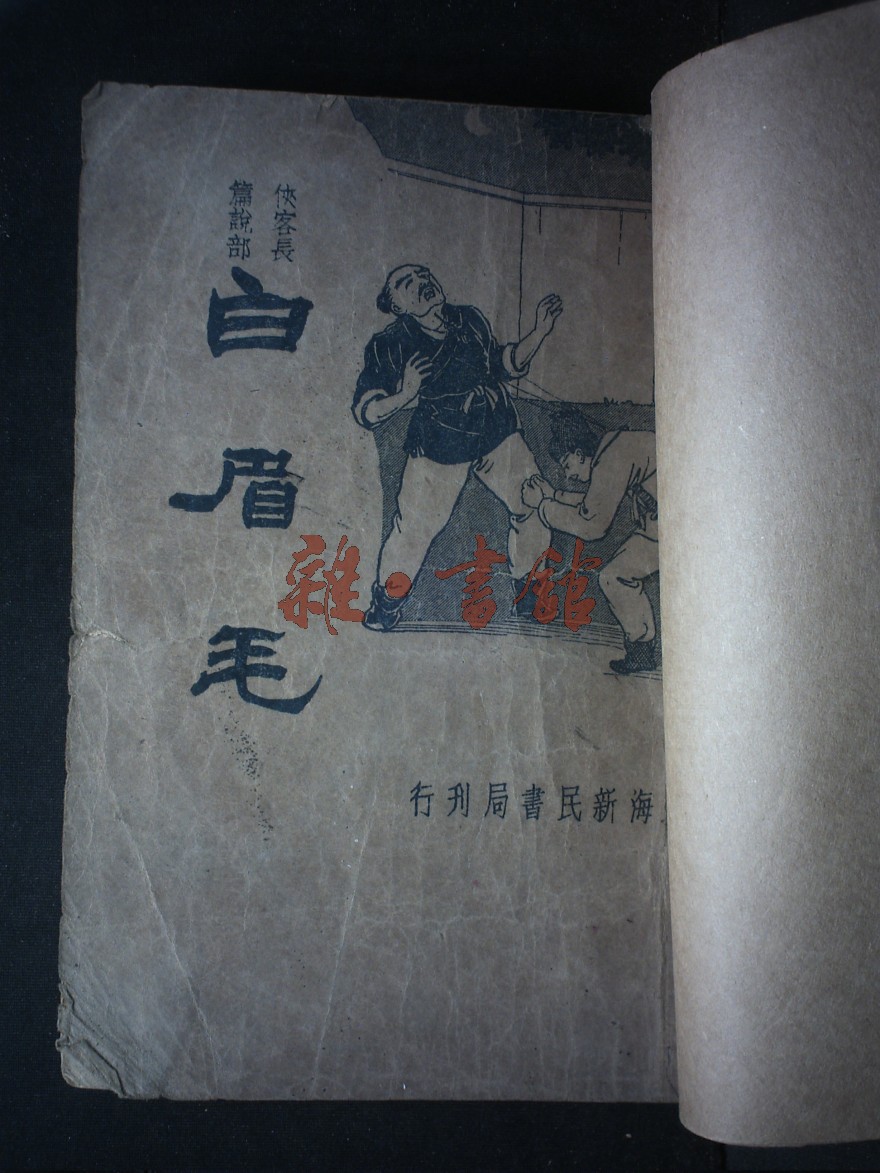 俠客長
篇說部
白眉毛
海新民書局刋行
雜·書館